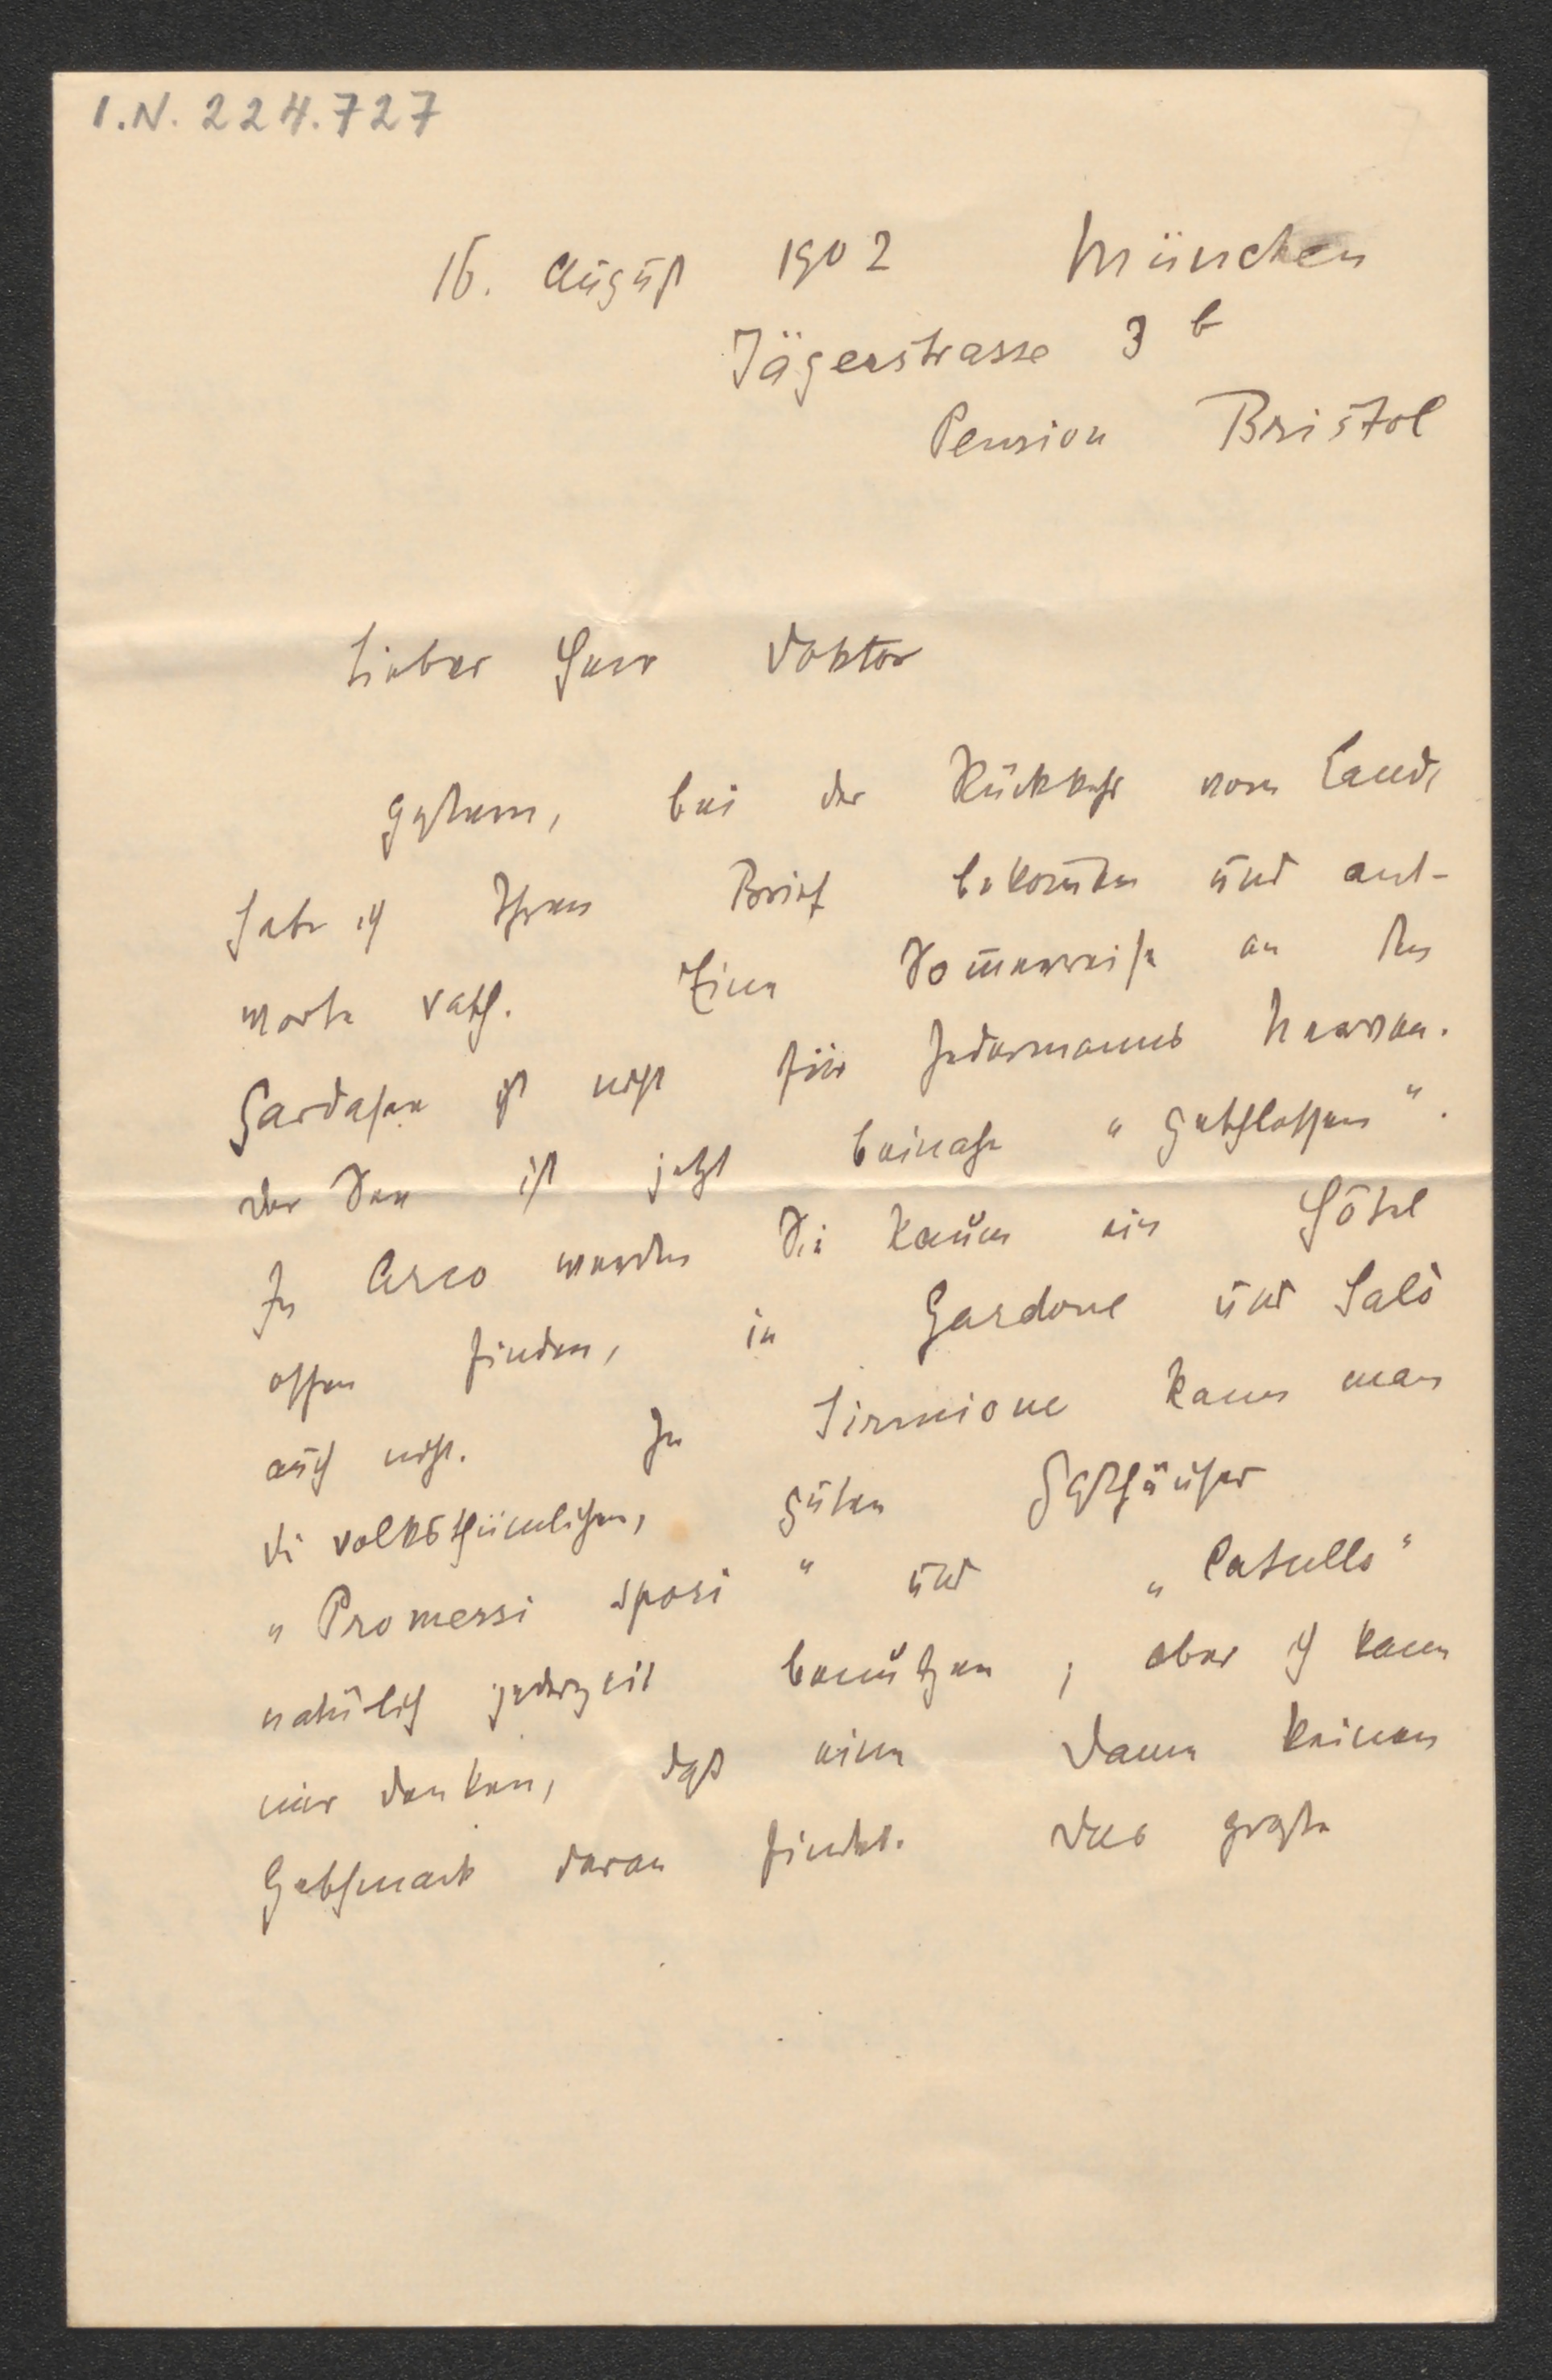 I.N. 224.727
16. August 1902 München
Jägerstrasse 3 b
Pension Bristol
Lieber Herr Doktor
gestern, bei der Rückkehr vom Land,
habe ich Ihren Brief bekom̅en und ant-
worte rasch. Eine Som̅erreise an den
Gardasee ist nicht für Jedermanns Nerven.
Der See ist jetzt beinahe "geschlossen".
In Arco werden Sie kaum ein Hôtel
offen finden, in Gardone und Salò
auch nicht. In Sirmione kann man
die volksthümlichen, guten Gasthäuser
"Promessi sposi" und "Catullo"
natürlich jederzeit benützen; aber ich kann
mir denken, dass eine Dame keinen
Geschmack daran findet. Das grosse